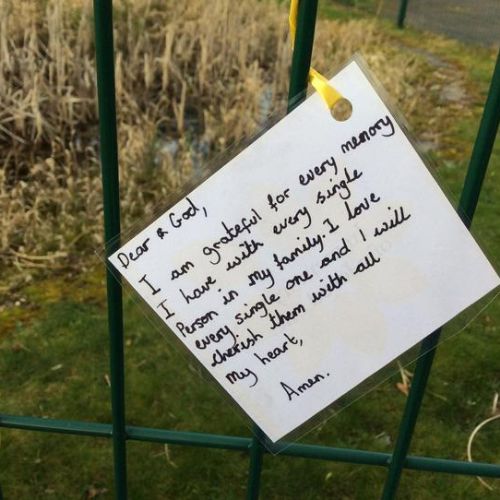 Dear a God,
I am grateful for every memory
I have with every single
Person in my family. I love
every single one and I will
cherish them with all
my heart,
Amen.